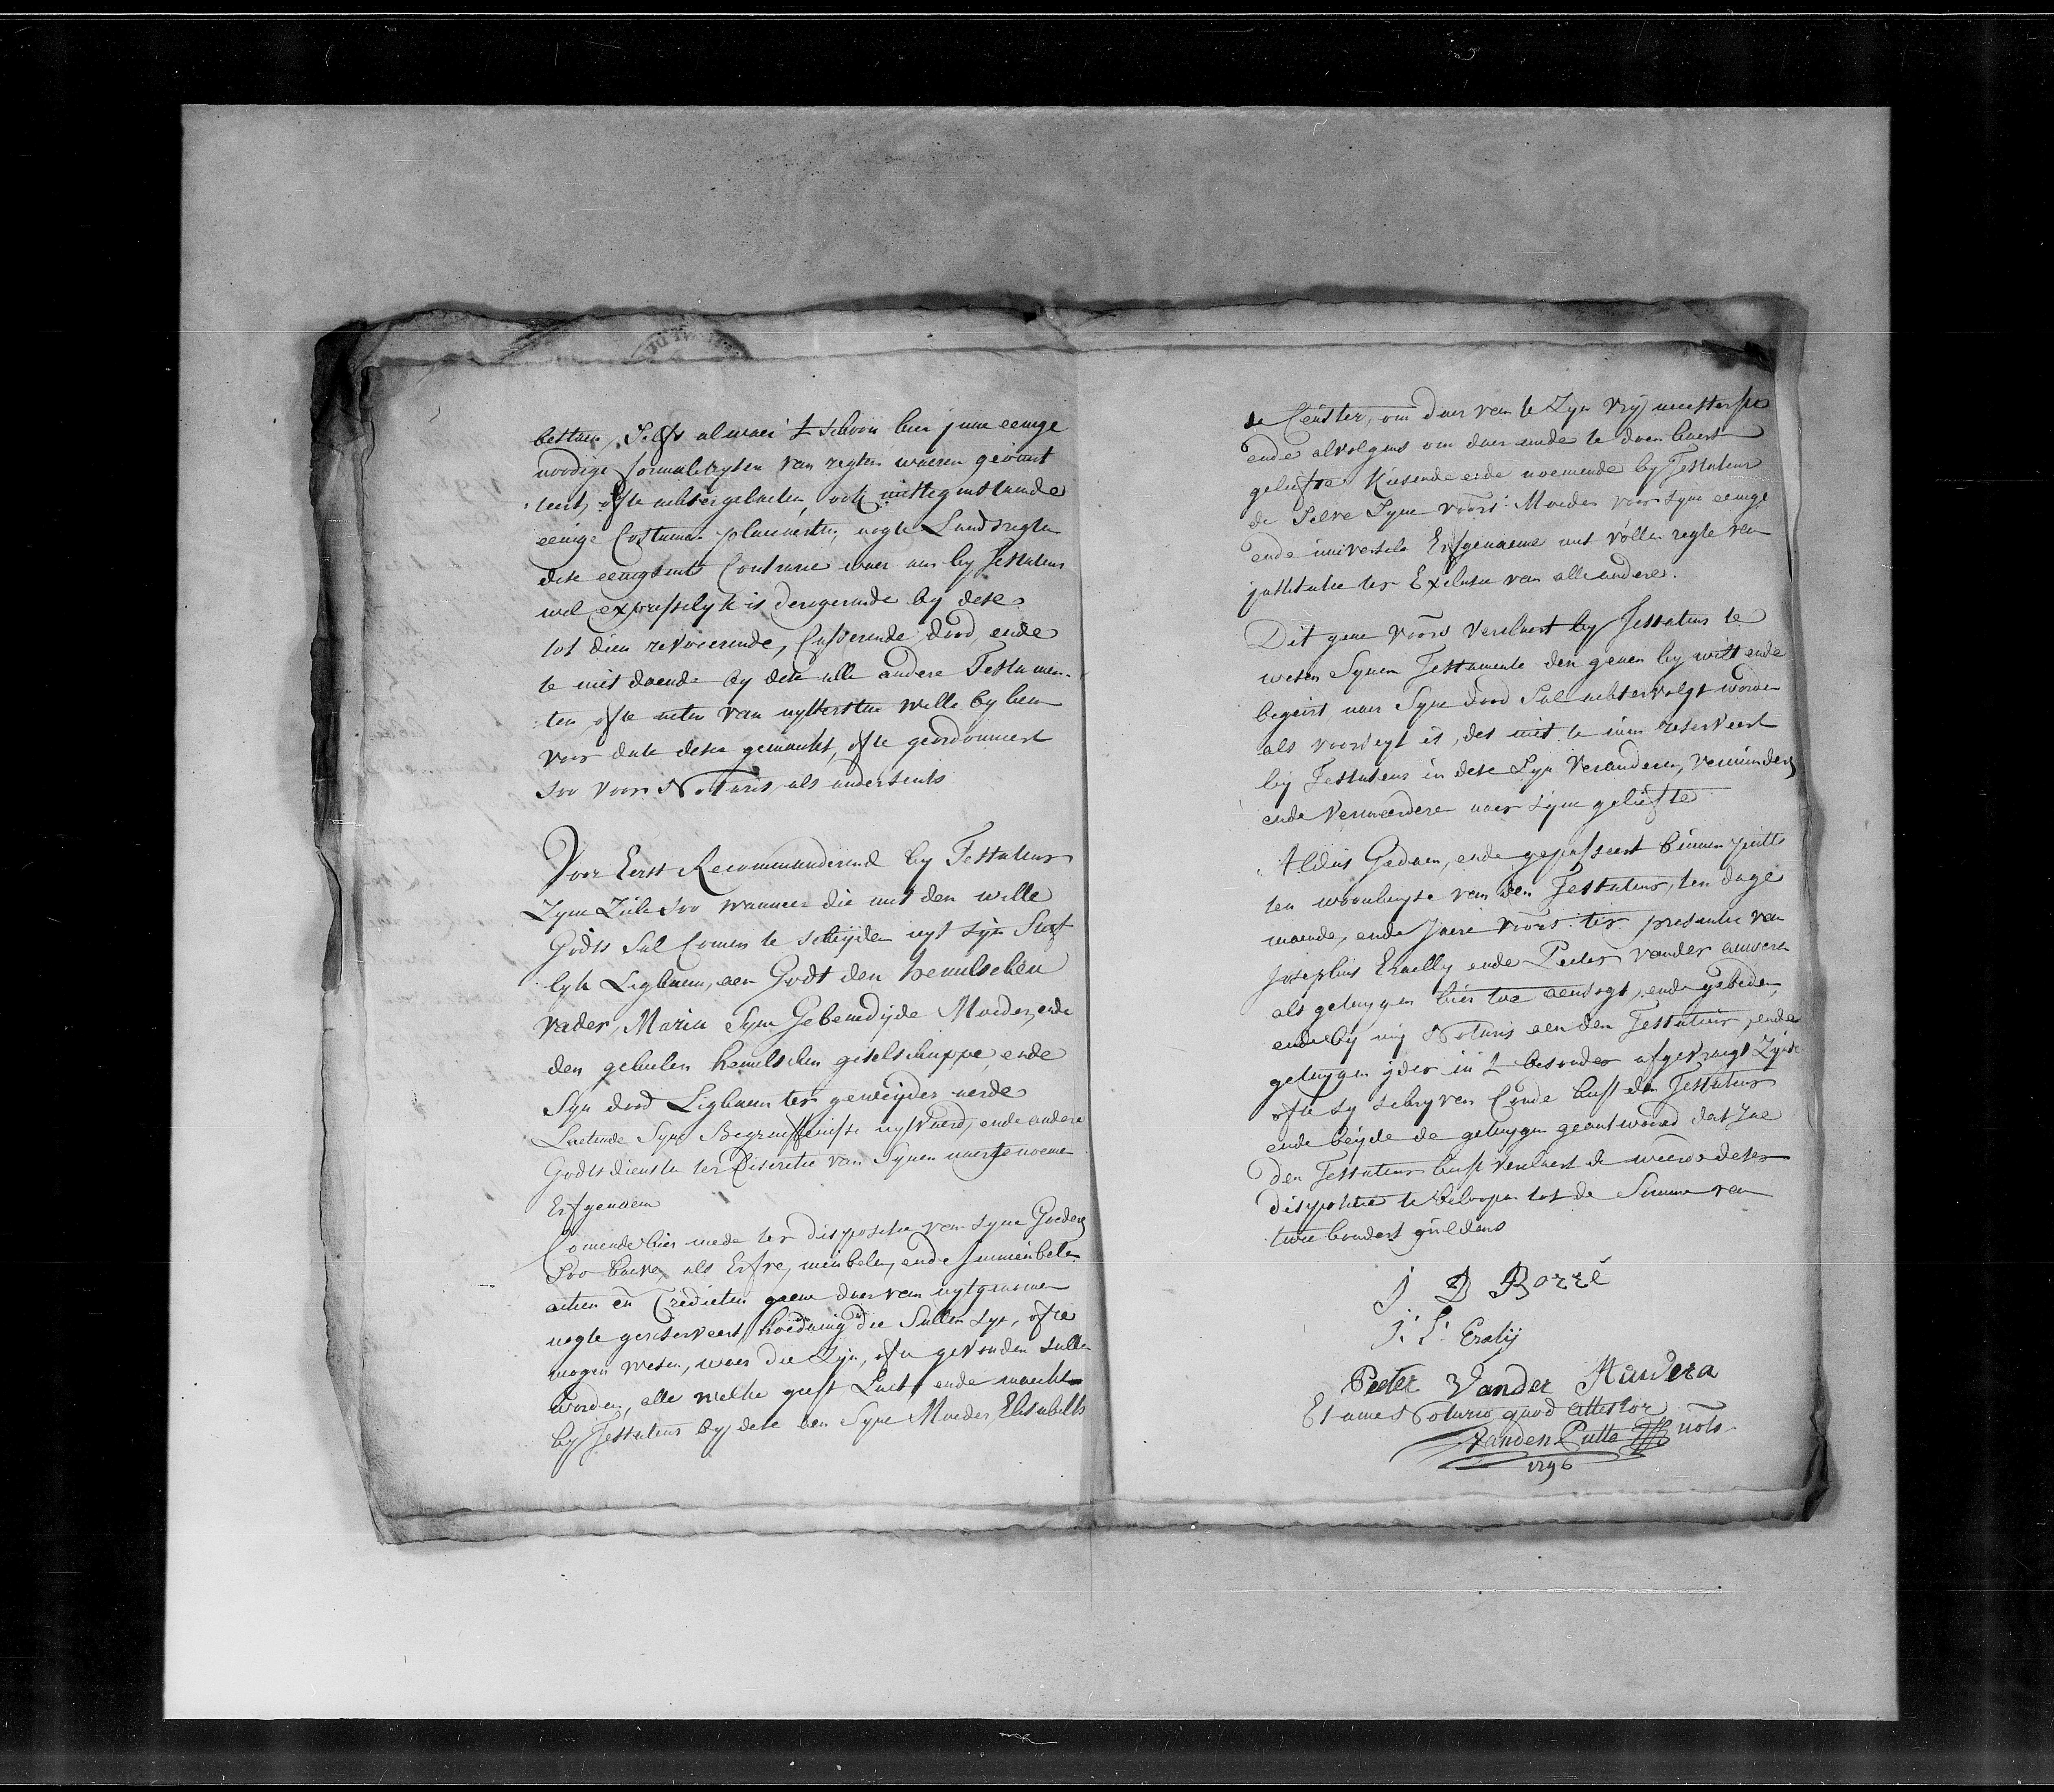 bestaen, Selfs alwaer 't schoon hier inne eenige
noodige formaliteyten van regten waeren geomit
teert, ofte achtergelaeten, ook niettegenstaende
eenige Costumen placcaerten, nogte Landsregten
dese eenigsints Contrarie waer aen by Testateur
wel expresselyk is derogerende by dese
tot dien revocerende, Casserende dood, ende
te niet doende by dese alle andere Testamen-
ten, ofte acten van uytterste wille by hem
voor date deser gemaekt, ofte geordonneert
soo voor Notaris als andersints
Voor Eerst Recommanderend by Testateur
Zyne Ziele soo wanneer die met den wille
Godts Sal Comen te scheyden uyt syn Sterf
lyk Lighaem, aen Godt den hemelschen
vader, Maria Syne Gebenedyde Moeder, ende
den geheelen hemelschen geselschappe, ende
Syn dood Lighaem ter geweyder aerde
Laetende Syne Begraeffenisse uytvaerd, ende andere
Godtsdiensten ter discretie van Synen naergenoemen
Erfgenaem
Comende hier mede ter dispositie van syne Goederen
Soo haeve, als Erfve, meubelen, ende Immeubelen
actien en Credieten geene daer van uytgenomen
nogte gereserveert hoedanig die Sullen syn, ofte
mogen wesen, waer die Zyn, ofte gevonden sullen
worden, alle welke geeft Laet, ende maekt
by Testateur by dese aen Syne Moeder Elisabeth
de Ceuster, om daer van te Zyn vry meestersse
ende alvolgens om daer mede te doen haere
geliefte Kiesende ende noemende by Testateur
de Selve Syne voors: Moeder voor syne eenige
ende universele Erfgenaeme met vollen regte van
institutie ter Exclusie van alle andere.
Dit gene voors verclaert by Testateur te
wesen Synen Testamente den genen hy wilt ende
begeirt naer Syne dood Sal achtervolgt worden
als voorseyt is, des niet te min reserveert
by Testateur in dese Syn Veranderen, verminderen
ende Vermeerderen naer syne geliefte
Aldus Gedaen, ende gepasseert binnen putte
ten woonhuyse van den Testateur, ten dage
maende, ende Jaere voors: ter presentie van
Josephus Eraelly ende Peeter vander auwera
als getuygen hier toe aensogt, ende gebeden
ende by my Notaris aen den Testateur, ende
getuygen ider in 't besonder afgevraegt Zynde
ofte sy schryven Conde heeft den Testateur
ende beyde de getuygen geantwoord dat Jae
Den Testateur heeft verclaert de weerde deser
dispositie te beloopen tot de Somme van
twee hondert guldens
J B Borré
J: S: Eralij
Peeter Vander Auwera
Et ame Notario quod attestor
Vanden Putte nots
1796